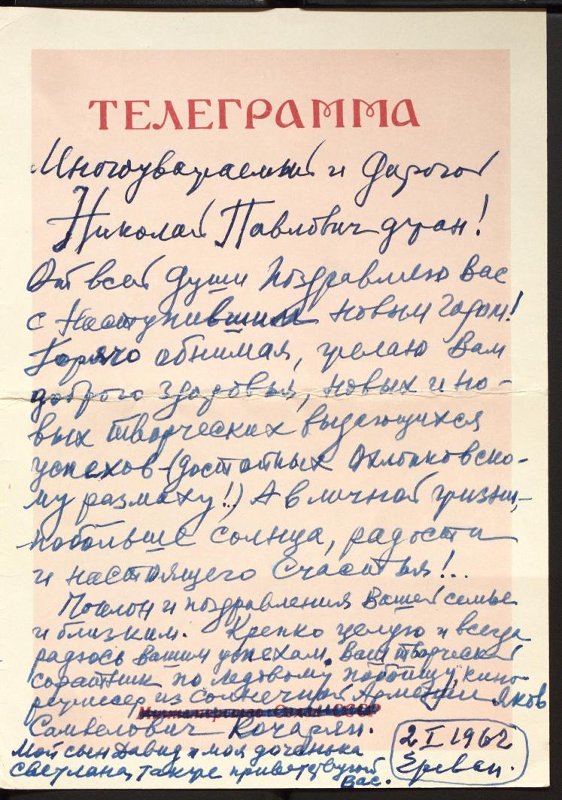 ТЕЛЕГРАММА
Многоуважаемый и дорогой
Николай Павлович джан!
От всей души поздравляю Вас
с наступившим новым годом!
Горячо обнимая, желаю Вам
доброго здоровья, новых и но-
вых творческих выдающихся
успехов – (достойных Охлопковско-
му размаху!) А в личной жизни,–
побольше солнца, радости
и настоящего счастья!...
Поклон и поздравления Вашей семье
и близким. Крепко целую и всегда
радуюсь вашим успехам, Ваш творческий
соратник по Ледовому побоищу, кино-
режиссер из солнечной Армении Яков
Самвелович Кочарян.
Мой сын Давид и моя доченька
Светлана, также приветствуют
Вас.
2 I 1962
Ереван.